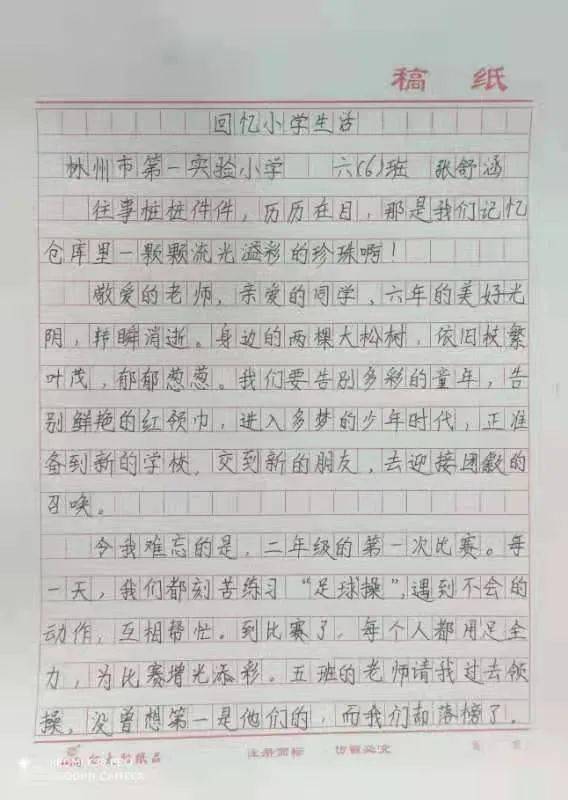 稿 纸
回忆小学生活
林州市第一实验小学 六(6)班 张舒涵
往事桩桩件件，历历在目，那是我们记忆
仓库里一颗颗流光溢彩的珍珠啊！
敬爱的老师，亲爱的同学，六年的美好光
阴，转瞬消逝。身边的两棵大松树，依旧枝繁
叶茂，郁郁葱葱。我们要告别多彩的童年，告
别鲜艳的红领巾，进入多梦的少年时代，正准
备到新的学校，交到新的朋友，去迎接团徽的
召唤。
令我难忘的是，二年级的第一次比赛。每
一天，我们都刻苦练习“足球操”，遇到不会的
动作，互相帮忙。到比赛了，每个人都用足全
力，为比赛增光添彩。五班的老师请我过去领
操，没曾想第一是他们的，而我们却落榜了。
纸品 注册商标 仿冒必究